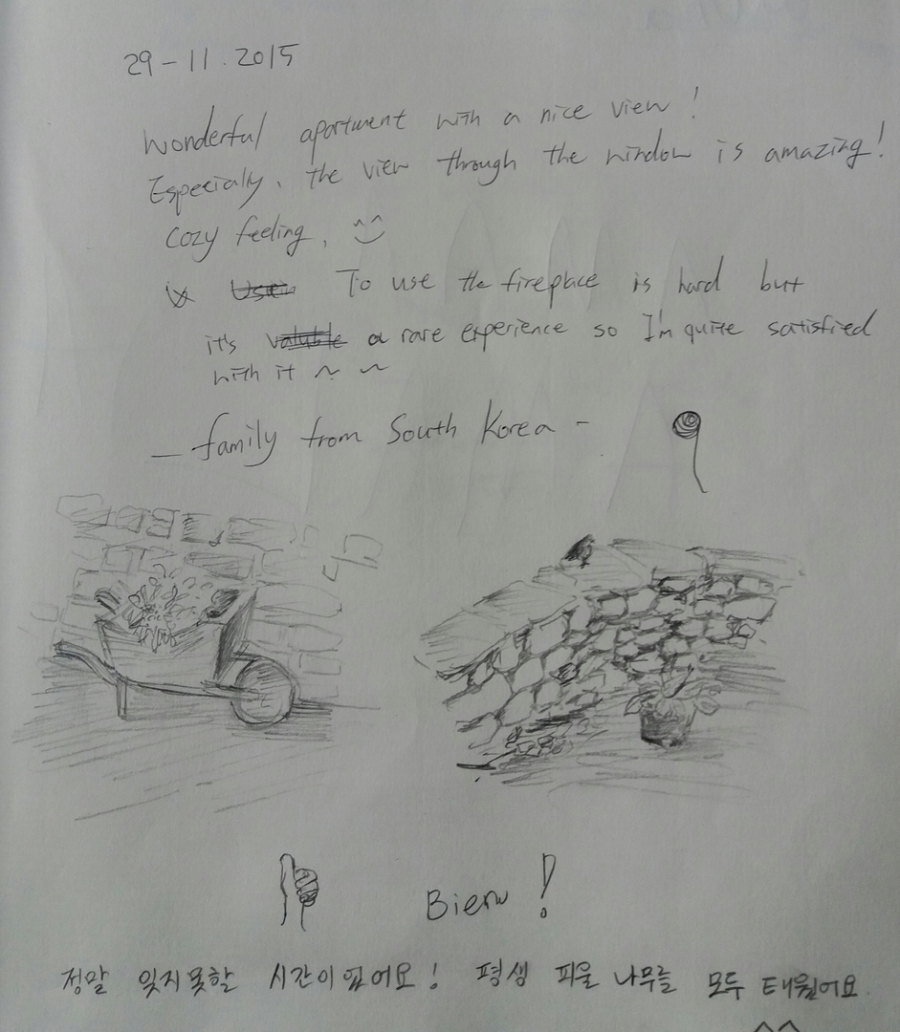 29-11.2015
Wonderful apartment with a nice view!
Especially, the view through the window is amazing!
Cozy feeling. ^^
To use the fireplace is hard but
it's a rare experience so I'm quite satisfied
with it ~ ~
- family from South Korea -
Bien!
정말 잊지못할 시간이었어요! 평생 피울 나무를 모두 태웠어요
^^